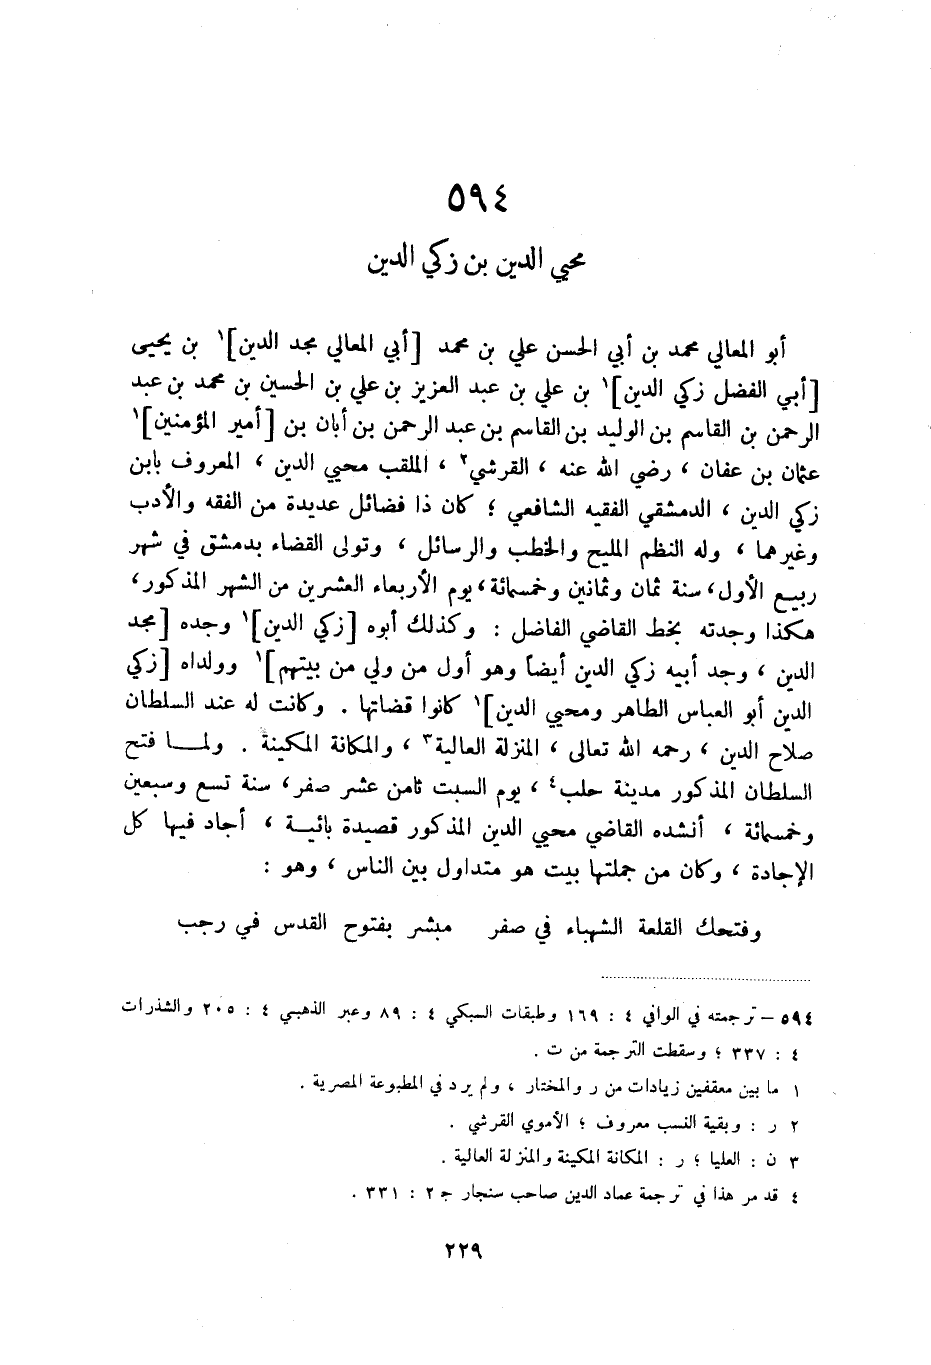 ٥٩٤
محيي الدين بن زكي الدين
أبو المعالي محمد بن أبي الحسن علي بن محمد [أبي المعالي مجد الدين]١ بن يحيى
[أبي الفضل زكي الدين]١ بن علي بن عبد العزيز بن علي بن الحسين بن محمد بن عبد
الرحمن بن القاسم بن الوليد بن القاسم بن عبد الرحمن بن أبان بن [أمير المؤمنين]١
عثمان بن عفان ، رضي الله عنه ، القرشي٢ ، الملقب محيي الدين ، المعروف بابن
زكي الدين ، الدمشقي الفقيه الشافعي ؛ كان ذا فضائل عديدة من الفقه والأدب
وغيرهما ، وله النظم المليح والخطب والرسائل ، وتولى القضاء بدمشق في شهر
ربيع الأول، سنة ثمان وثمانين وخمسمائة، يوم الأربعاء العشرين من الشهر المذكور،
هكذا وجدته بخط القاضي الفاضل : وكذلك أبوه [زكي الدين]١ وجده [مجد
الدين ، وجد أبيه زكي الدين أيضاً وهو أول من ولي من بيتهم]١ وولداه [زكي
الدين أبو العباس الطاهر ومحيي الدين]١ كانوا قضاتها . وكانت له عند السلطان
صلاح الدين ، رحمه الله تعالى ، المنزلة العالية٣ ، والمكانة المكينة . ولمـا فتح
السلطان المذكور مدينة حلب٤ ، يوم السبت ثامن عشر صفر، سنة تسع وسبعين
وخمسمائة ، أنشده القاضي محيي الدين المذكور قصيدة بائيـة ، أجاد فيها كل
الإجادة ، وكان من جملتها بيت هو متداول بين الناس ، وهو :
وفتحك القلعة الشهباء في صفر    مبشر بفتوح القدس في رجب
٥٩٤ - ترجمته في الوافي ٤ : ١٦٩ وطبقات السبكي ٤ : ٨٩ وعبر الذهبي ٤ : ٢٠٥ والشذرات
٤ : ٣٣٧ ؛ وسقطت الترجمة من ت .
١ ما بين معقفين زيادات من ر والمختار ، ولم يرد في المطبوعة المصرية .
٢ ر : وبقية النسب معروف ؛ الأموي القرشي .
٣ ن : العليا ؛ ر : المكانة المكينة والمنزلة العالية .
٤ قد مر هذا في ترجمة عماد الدين صاحب سنجار ج٢ : ٣٣١ .
٢٢٩